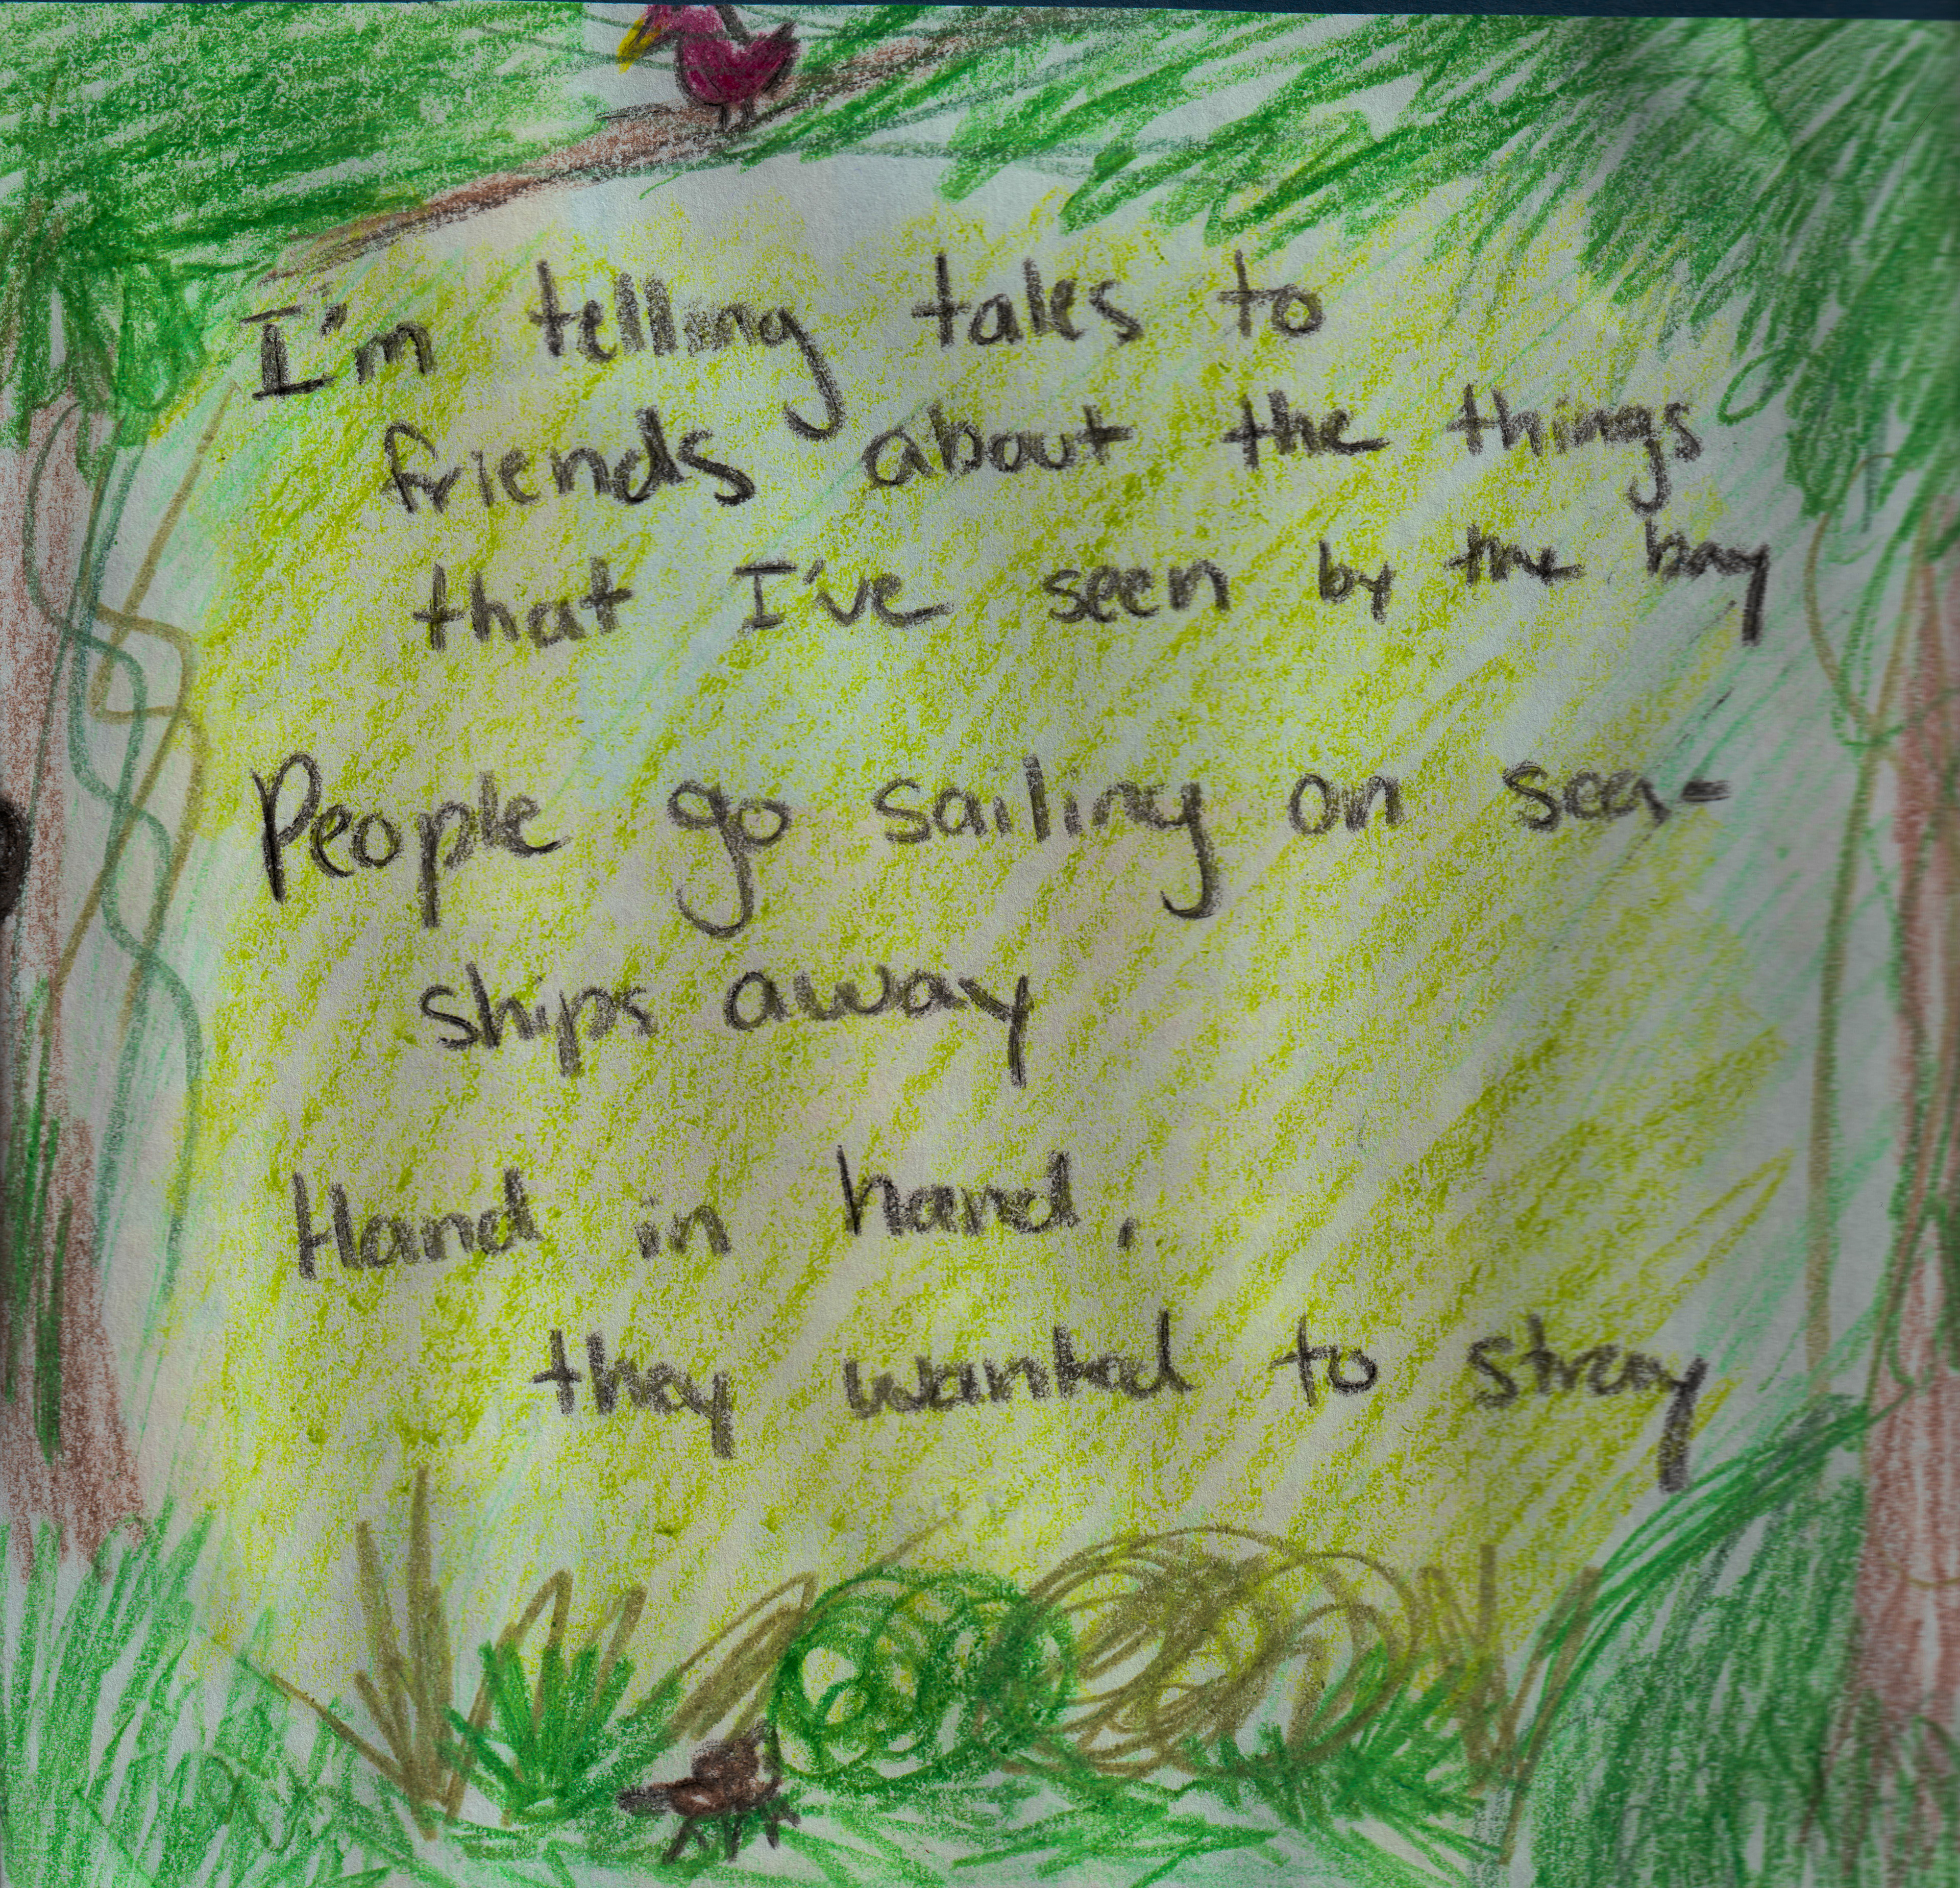 I'm telling tales to
friends about the things
that I've seen by the bay
People go sailing on sea-
ships away
Hand in hand,
they wanted to stray